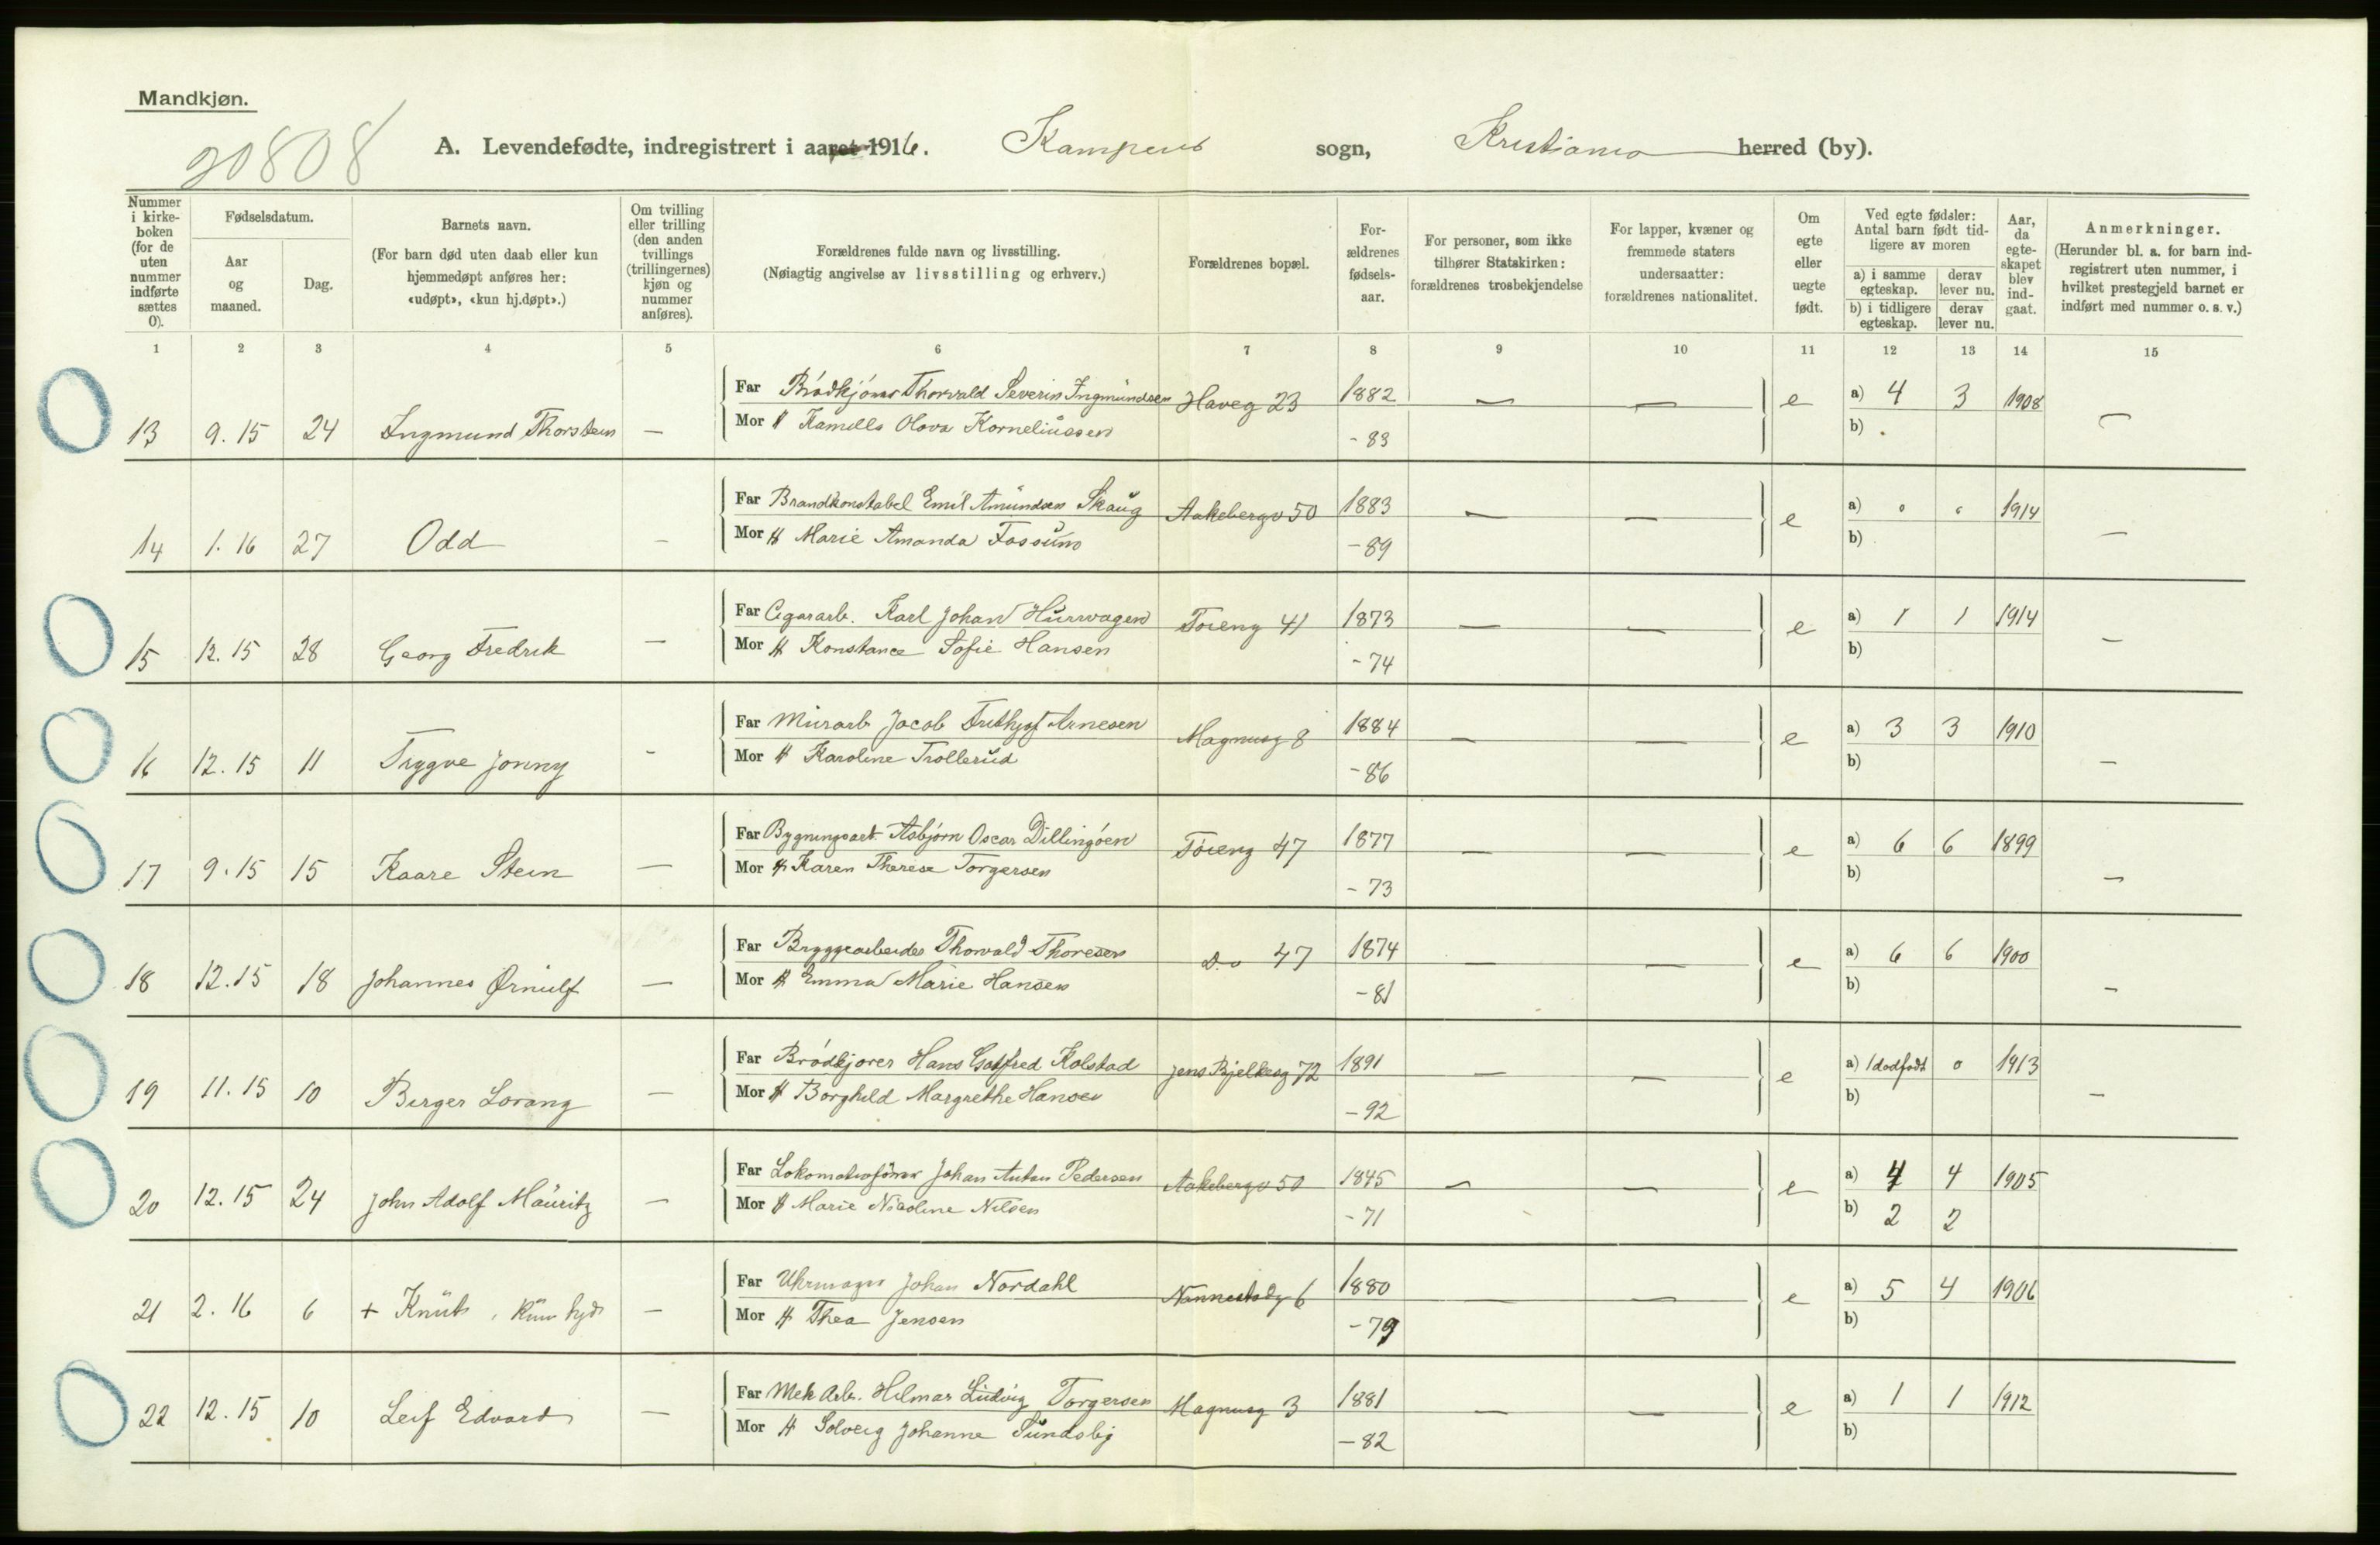 Mandkjøn.
20808
A. Levendefødte, indregistrert i aaret 1916. Kampens sogn, Kristiania herred (by).
Nummer i kirke-boken (for de uten nummer indførte sættes 0).
Fødselsdatum.
Aar og maaned.
Dag.
Barnets navn.
(For barn død uten daab eller kun hjemmedøpt anføres her: «udøpt», «kun hj.døpt».)
Om tvilling eller trilling (den anden tvillings (trillingernes) kjøn og nummer anføres).
Forældrenes fulde navn og livsstilling.
(Nøiagtig angivelse av livsstilling og erhverv.)
Forældrenes bopæl.
For-ældrenes fødsels-aar.
For personer, som ikke tilhører Statskirken: forældrenes trosbekjendelse
For lapper, kvæner og fremmede staters undersaatter: forældrenes nationalitet.
Om egte eller uegte født.
Ved egte fødsler: Antal barn født tid-ligere av moren
a) i samme egteskap. derav lever nu.
b) i tidligere egteskap. derav lever nu.
Aar, da egte-skapet blev ind-gaat.
Anmerkninger.
(Herunder bl. a. for barn ind-registrert uten nummer, i hvilket prestegjeld barnet er indført med nummer o. s. v.)
1 2 3 4 5 6 7 8 9 10 11 12 13 14 15
Far Brödkjörer Thorvald Severin Ingmundsen Haveg 23 1882 — — e a) 4 3 1908
13 9.15 24 Ingmund Thorstein — Mor H Kamilla Olova Korneliussen - 83 b) —
Far Brandkonstabel Emil Amundsen Skaug Aakebergv 50 1883 — — e a) 0 0 1914
14 1.16 27 Odd — Mor H Marie Amanda Fossum - 89 b) —
Far Cigararb. Karl Johan Hurwagen Töieng 41 1873 — — e a) 1 1 1914
15 12.15 28 Georg Fredrik — Mor H Konstance Sofie Hansen - 74 b) —
Far Murarb Jacob Frithjof Arnesen Magnusg 8 1884 — — e a) 3 3 1910
16 12.15 11 Trygve Jonny - Mor H Karoline Trollerud - 86 b) —
Far Bygningsarb. Asbjörn Oscar Dillingöen Töieng 47 1877 — — e a) 6 6 1899
17 9.15 15 Kaare Stein — Mor H Karen Therese Torgersen - 73 b) —
Far Bryggearbeider Thorvald Thoresen Do 47 1874 — — e a) 6 6 1900
18 12.15 18 Johannes Ørnulf — Mor H Emma Marie Hansen - 81 b) —
Far Brödkjörer Hans Gotfred Kolstad Jens Bjelkesg 72 1891 — — e a) 1 dødfødt 0 1913
19 11.15 10 Birger Lorang — Mor H Borghild Margrethe Hansen - 92 b) —
Far Lokomotivförer Johan Anton Pedersen Aakebergv 50 1845 — — e a) 4 4 1905
20 12.15 24 John Adolf Mauritz — Mor H Marie Nicoline Nilsen - 71 b) 2 2
Far Uhrmager Johan Nordahl Nannestadg 6 1880 — — e a) 5 4 1906
21 2.16 6 + Knut, Kun hjd — Mor H Thea Jensen - 79 b)
Far Mek Arb. Hilmar Ludvig Torgersen Magnusg 3 1881 — — e a) 1 1 1912
22 12.15 10 Leif Edvard — Mor H Solveig Johanne Sundsbj - 82 b)